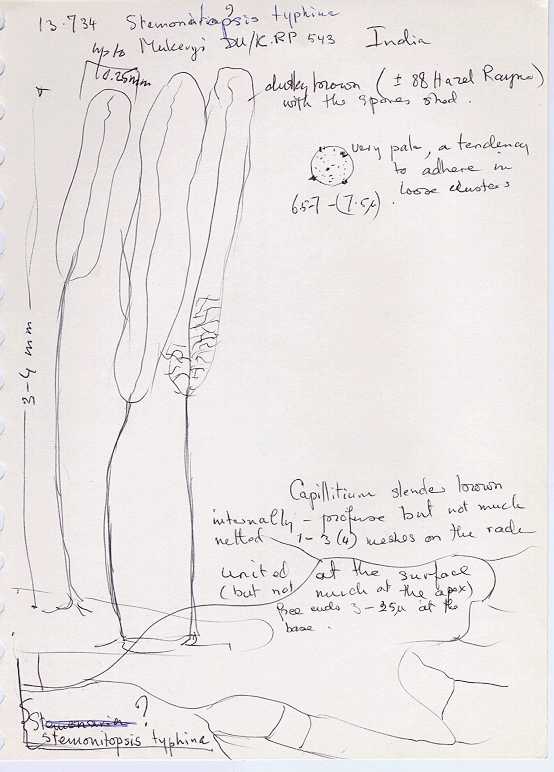 13.734 Stemonitopsis typhina ?
up to Mukerji DU/K.RP 543 India
0.25mm
dusky brown (± 88 Hazel Rayner)
with the spores shed.
very pale, a tendency
to adhere in
loose clusters
6.5-7-(7.5µ).
3-4 mm
Capillitium slender brown
internally - profuse but not much
netted 1-3(4) meshes on the
united at the surface
(but not much at the apex)
free ends 3-25µ at the
base.
Stemonaria ?
stemonitopsis typhina